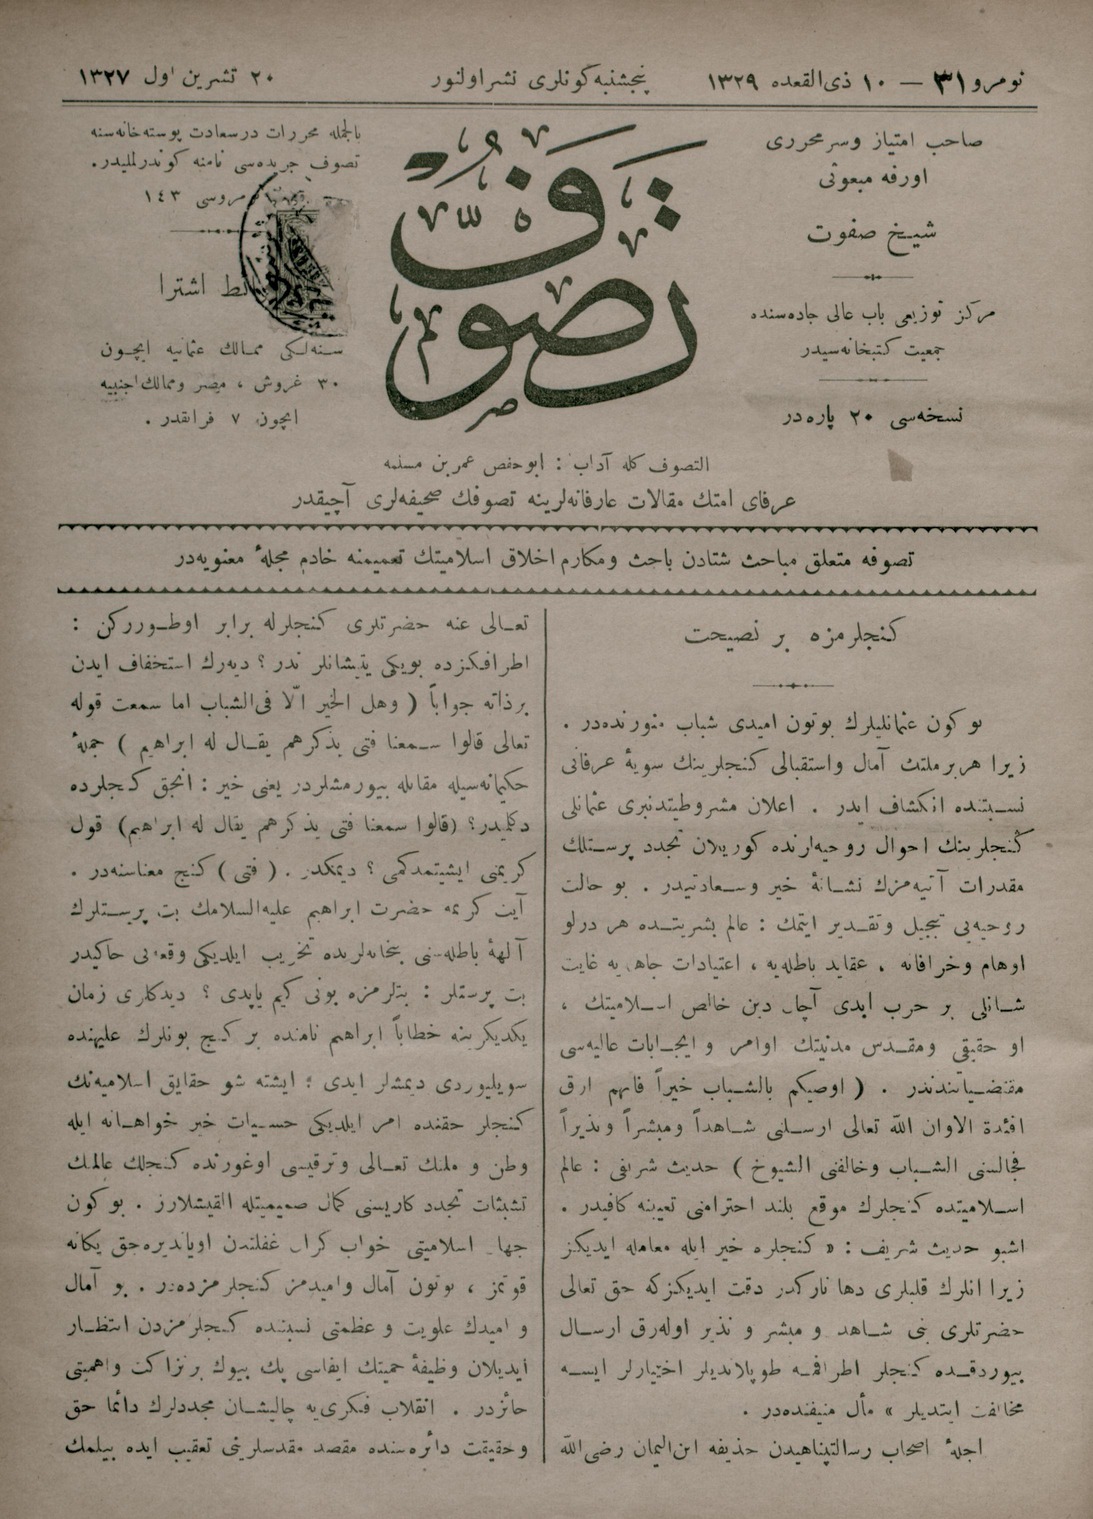 نومرو ٣١ — ١٠ ذی‌القعده ١٣٢٩
پنجشنبه کونلری نشر اولنور
٢٠ تشرین اول ١٣٢٧
صاحب امتیاز وسرمحرری
اورفه مبعوثی
شیخ صفوت
مرکز توزیعی باب عالی جاده‌سنده
جمعیت کتبخانه‌سیدر
نسخه‌سی ٢٠ پاره‌در
تصوف
بالجمله محررات درسعادت پوسته‌خانه‌سنه
تصوف جریده‌سی نامنه کوندرلملیدر.
نومروسی ١٤٣
اشترا
سنه‌لکی ممالک عثمانیه ایچون
٣٠ غروش ، مصر وممالک اجنبیه
ایچون ٧ فرانقدر .
التصوف کله آداب : ابوحفص عمر بن مسلمه
عرفای امتک مقالات عارفانه‌لرینه تصوفک صحیفه‌لری آچیقدر
تصوفه متعلق مباحث شتادن باحث ومکارم اخلاق اسلامیتک تعمیمنه خادم مجلهٔ معنویه‌در
کنجلرمزه بر نصیحت
بو کون عثمانلیلرک بوتون امیدی شباب منورنده‌در .
زیرا هر بر ملتک آمال واستقبالی کنجلرینک سویهٔ عرفانی
نسبتنده انکشاف ایدر . اعلان مشروطیتدنبری عثمانلی
کنجلرینک احوال روحیه‌لرنده کوریلان تجدد پرستلک
مقدرات آتیه‌مزک نشانهٔ خیر وسعادتیدر . بو حالت
روحیه‌یی تبجیل وتقدیر ایتمک : عالم بشریتده هر درلو
اوهام وخرافاته ، عقاید باطله‌یه ، اعتیادات جاهلیه‌یه غایت
شانلی بر حرب ابدی آچان دین خالص اسلامیتک ،
او حقیقی ومقدس مدنیتک اوامر و ایجابات عالیه‌سی
مقتضیاتندندر . ( اوصیکم بالشباب خیراً فانهم ارق
افئدة الاوان الله تعالی ارسلنی شاهداً ومبشراً ونذیراً
فجالسنی الشباب وخالفنی الشیوخ ) حدیث شریفی : عالم
اسلامیتده کنجلرک موقع بلند احترامنی تعیینه کافیدر .
اشبو حدیث شریف : « کنجلره خیر ایله معامله ایدیکز
زیرا انلرک قلبلری دها نازکدر دقت ایدیکزکه حق تعالی
حضرتلری بنی شاهد و مبشر و نذیر اوله‌رق ارسال
بیوردقده کنجلر اطرافمه طوپلاندیلر اختیارلر ایسه
مخالفت ایتدیلر » مآل منیفنده‌در .
اجلهٔ اصحاب رسالتپناهیدن حذیفه ابن الیمان رضی‌الله
تعالی عنه حضرتلری کنجلرله برابر اوطوررکن :
اطرافکزده بویکی یتیشانلر ندر ؟ دیه‌رک استخفاف ایدن
بر ذاته جواباً ( وهل الخیر الّا فی‌الشباب اما سمعت قوله
تعالی قالوا سمعنا فتی یذکرهم یقال له ابراهیم ) جملهٔ
حکیمانه‌سیله مقابله بیورمشلردر یعنی خیر : انجق کنجلرده
دکلمیدر؟ (قالوا سمعنا فتی یذکرهم یقال له ابراهیم) قول
کریمنی ایشیتمدکمی ؟ دیمکدر . ( فتی ) کنج معناسنه‌در .
آیت کریمه حضرت ابراهیم علیه‌السلامک بت پرستلرک
آلههٔ باطله‌سنی بتخانه‌لرنده تخریب ایلدیکی وقعه‌یی حاکیدر
بت پرستلر : بتلرمزه بونی کیم یاپدی ؟ دیدکلری زمان
یکدیکرینه خطاباً ابراهیم نامنده بر کنج بونلرک علیهنده
سویلیوردی دیمشلر ایدی ؛ ایشته شو حقایق اسلامیه‌نک
کنجلر حقنده امر ایلدیکی حسیات خیر خواهانه ایله
وطن و ملتک تعالی وترقیسی اوغورنده کنجلک عالمنک
تشبثات تجدد کاریسنی کمال صمیمیتله القیشلارز . بو کون
جهان اسلامیتی خواب کران غفلتدن اویاندیره‌جق یکانه
قوتمز ، بوتون آمال وامیدمز کنجلرمزده‌در . بو آمال
و امیدک علویت و عظمتی نسبتنده کنجلرمزدن انتظار
ایدیلان وظیفهٔ حمیتک ایفاسی پک بیوک بر نزاکت واهمیتی
حائزدر . انقلاب فکری‌یه چالیشان مجددلرک دائما حق
وحقیقت دائره‌سنده مقصد مقدسلرینی تعقیب ایده بیلمک